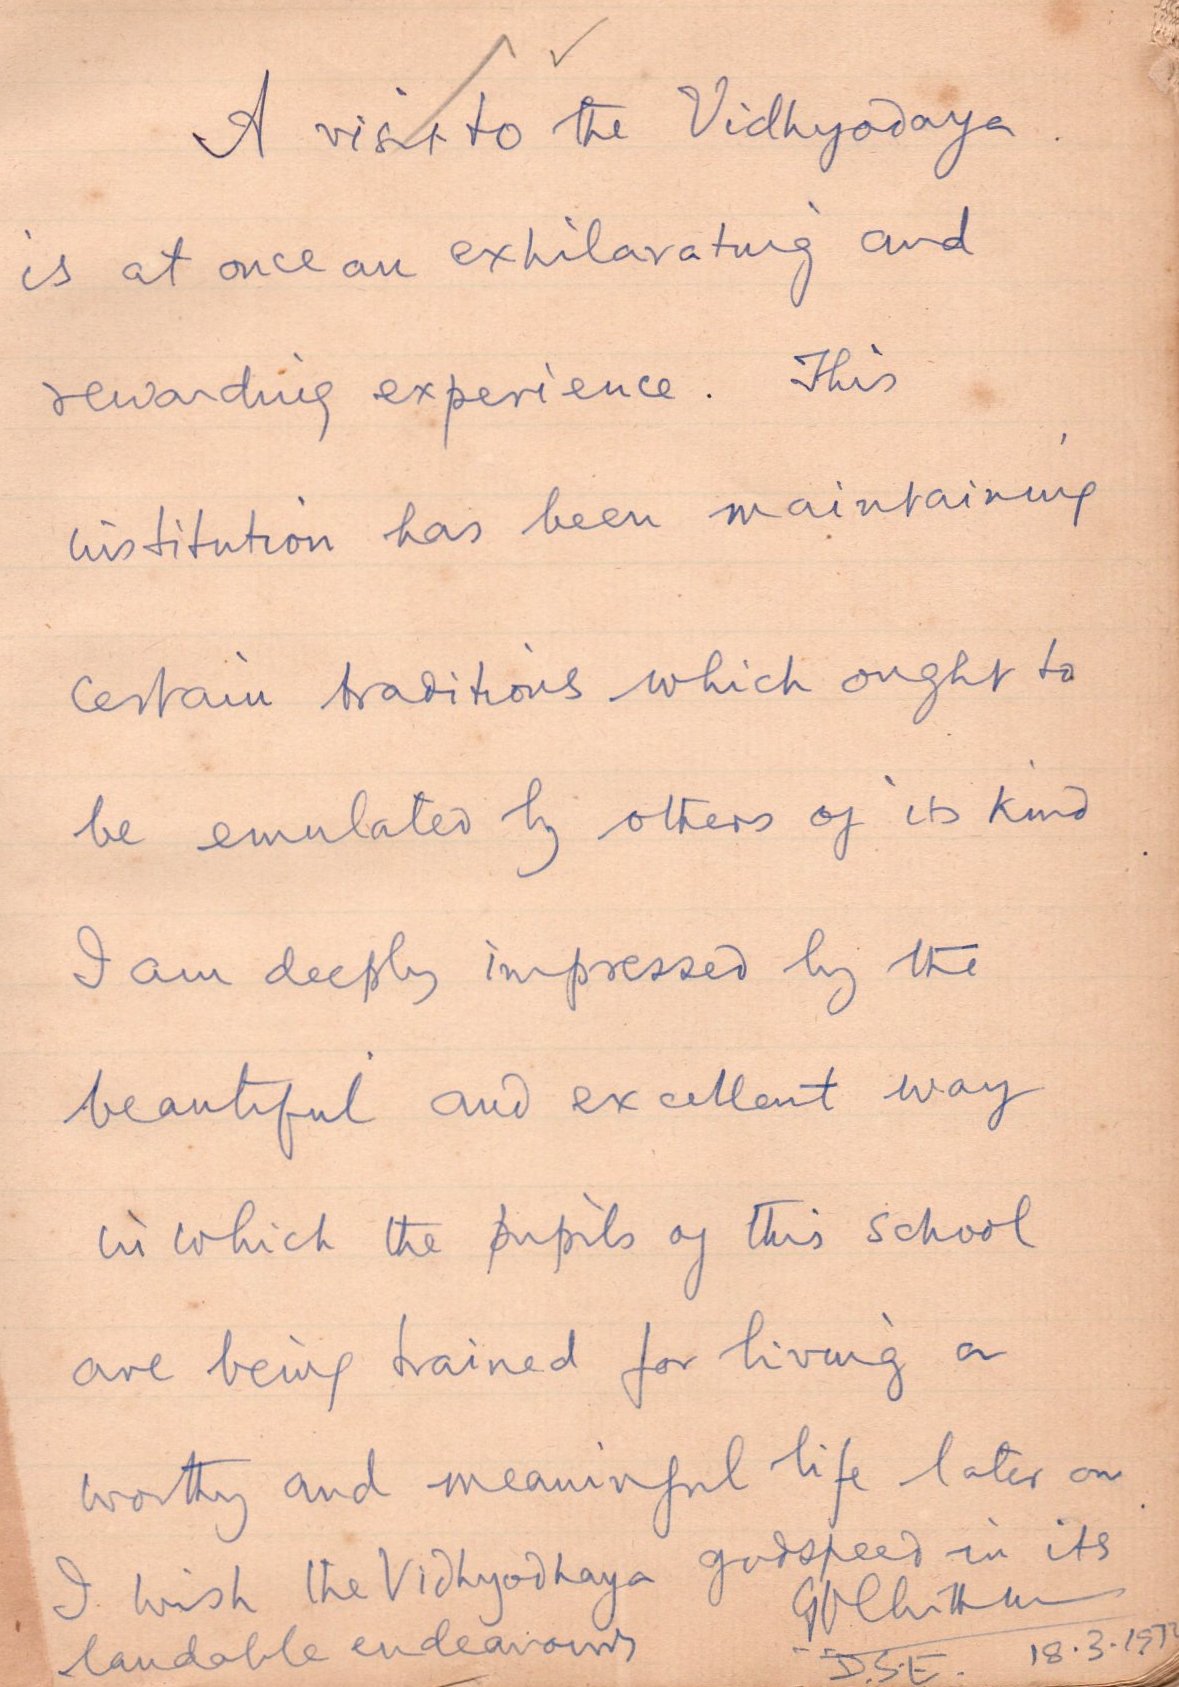 A visit to the Vidhyodaya
is at once an exhilarating and
rewarding experience. This
institution has been maintaining
certain traditions which ought to
be emulated by others of its kind
I am deeply impressed by the
beautiful and excellent way
in which the pupils of this school
are being trained for living a
worthy and meaningful life later on
I wish the Vidhyodhaya godspeed in its
laudable endeavours
D.S.E. 18.3.